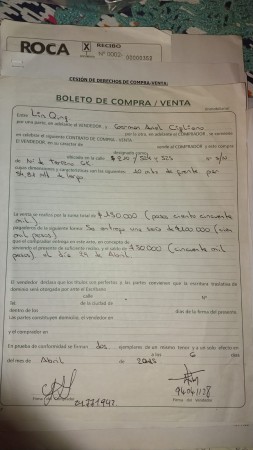 ROCA
X
RECIBO
Nº 0002-
CESIÓN DE DERECHOS DE COMPRA-VENTA:
BOLETO DE COMPRA / VENTA
Entre Lin
por otra parte, en adelante el VENDEDOR y German Ariel Cigliano
por la otra, en adelante el COMPRADOR, se conviene
en celebrar el siguiente CONTRATO COMPRA - VENTA
El VENDEDOR, en su caracter de vende al COMPRADOR y éste compra
designado como
ubicada en la calle 520 / 524 y 525 Nº S/N
cuyas dimensiones y características son las siguientes: 10 mts de frente por
de largo
La venta se realiza por la suma total de $ 150.000 (pesos ciento cincuenta
mil)
pagaderos de la siguiente forma: Se entrega una seña de $100.000 (cien
mil pesos)
que el comprador entrega en este acto, en concepto de
siendo el presente de suficiente recibo, y el saldo de $50.000 (cincuenta mil
pesos) el día 29 de Abril
El vendedor declara que los títulos son perfectos, y las partes convienen que la escritura traslativa de
dominio será otorgada por ante el Escribano
calle Nº
de la ciudad de
dentro de los días de la firma del presente
Las partes constituyen domicilio, el vendedor en
y el comprador en
En prueba de conformidad se firman dos ejemplares de un mismo tenor y a un solo efecto en
a los 6 días
del mes de Abril de
Firma del Comprador
Firma del Vendedor